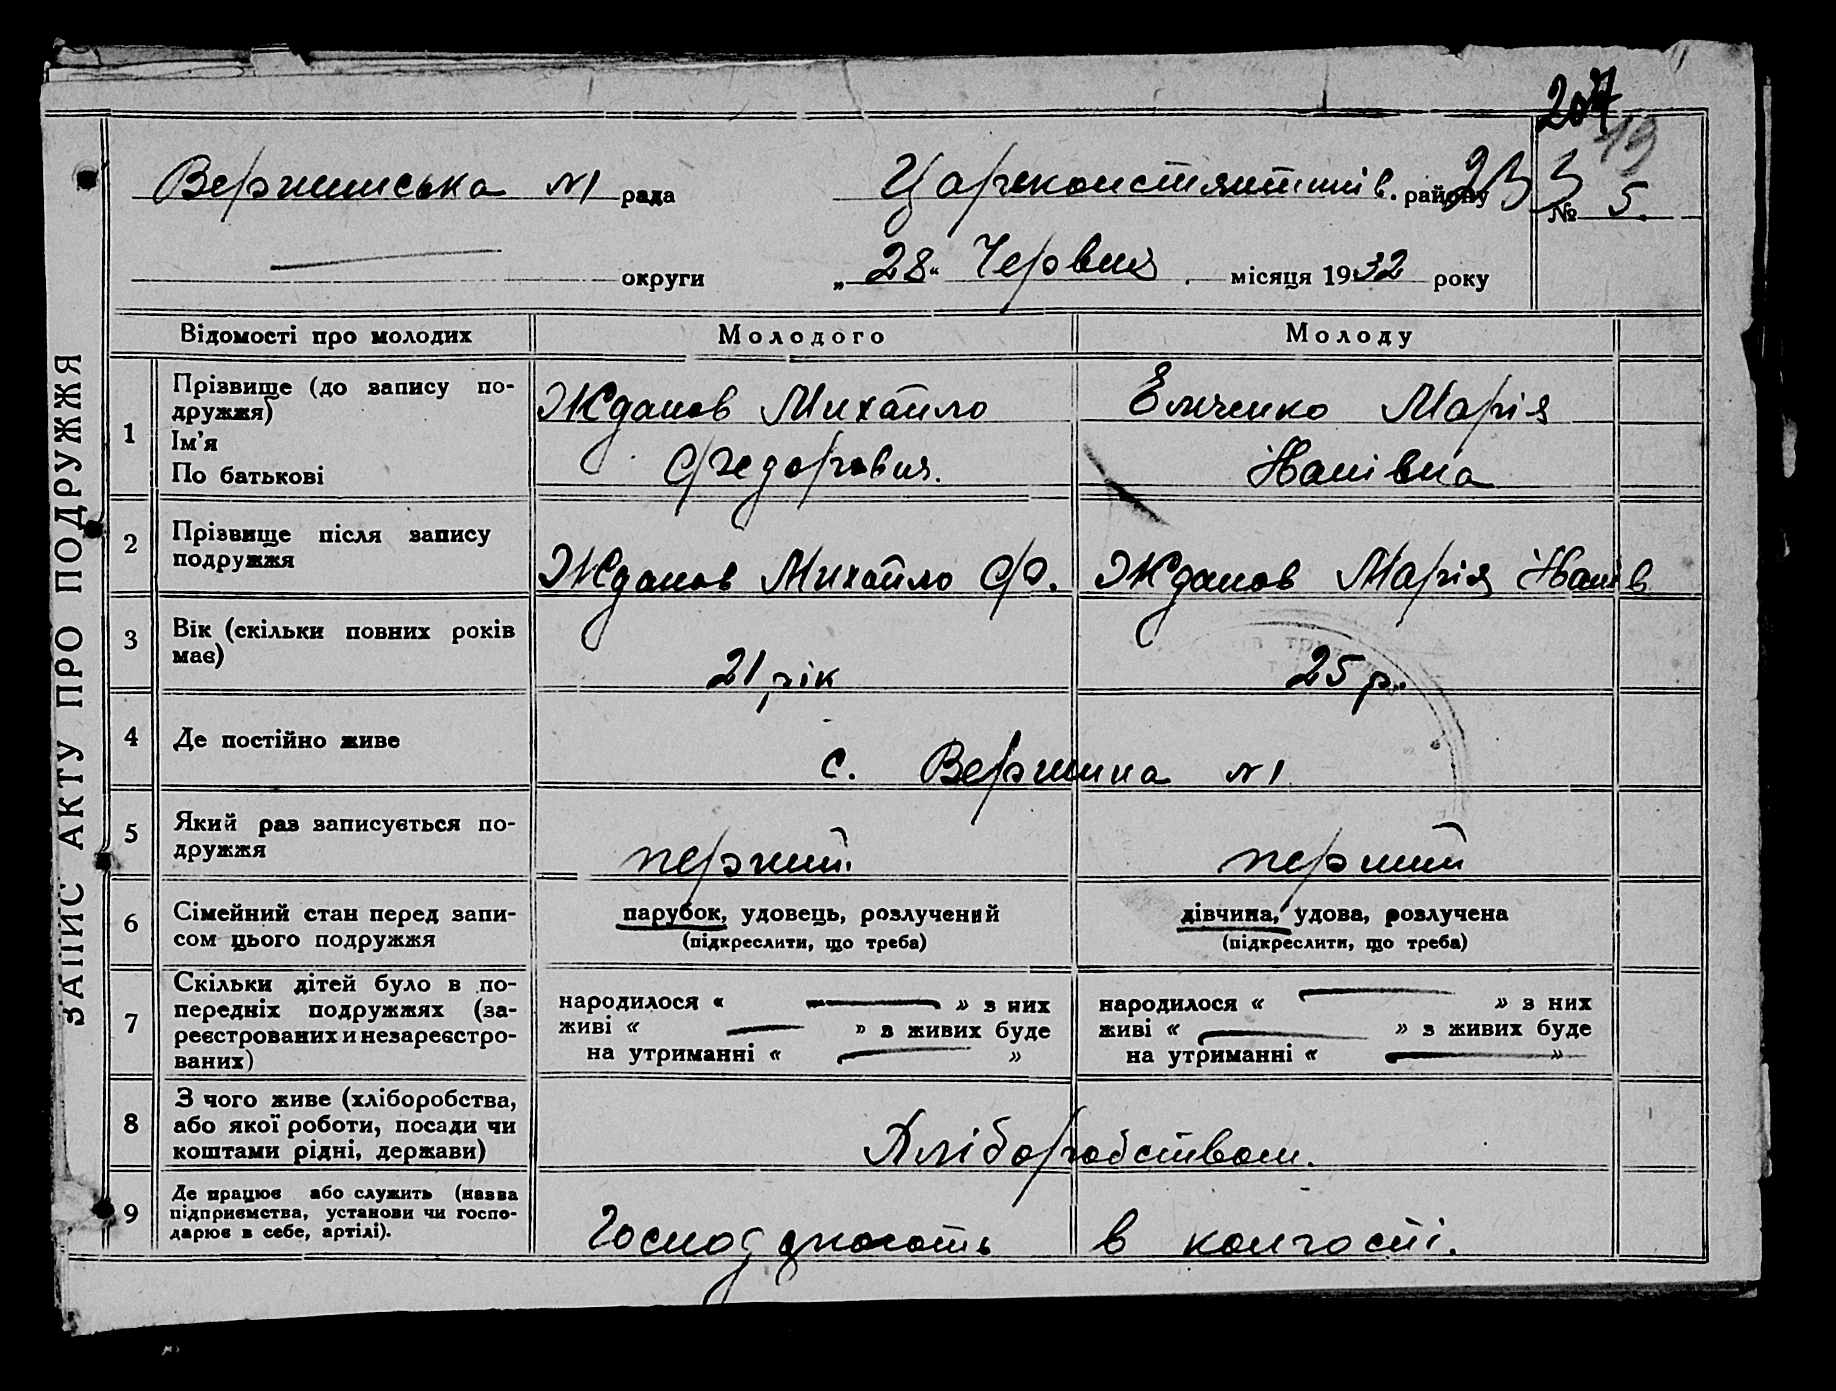 207
19
Вершинська №1 рада Цареконстянтинів. району
№ 5.
округи „28“ Червня місяця 1932 року
ЗАПИС АКТУ ПРО ПОДРУЖЖЯ
Відомості про молодих Молодого Молоду
1 Прізвище (до запису по-
дружжя)
Ім'я
По батькові
Жданов Михайло
Федорович.
Марія
Іванівна
2 Прізвище після запису
подружжя
Жданов Михайло Ф. Жданов Марія Іванів
3 Вік (скільки повних років
має)
21 рік 25 р.
4 Де постійно живе с. Вершина №1
5 Який раз записується по-
дружжя
перший. перший
6 Сімейний стан перед запи-
сом цього подружжя
парубок, удовець, розлучений
(підкреслити, що треба)
дівчина, удова, розлучена
(підкреслити, що треба)
7 Скільки дітей було в по-
передніх подружжях (за-
реєстрованих и незареєстро-
ваних)
народилося « — » з них
живі « — » з живих буде
на утриманні « — »
народилося « — » з них
живі « — » з живих буде
на утриманні « — »
8 З чого живе (хліборобства,
або якої роботи, посади чи
коштами рідні, держави)
Хліборобством.
9 Де працює або служить (назва
підприємства, установи чи госпо-
дарює в себе, артілі).
в колгоспі.